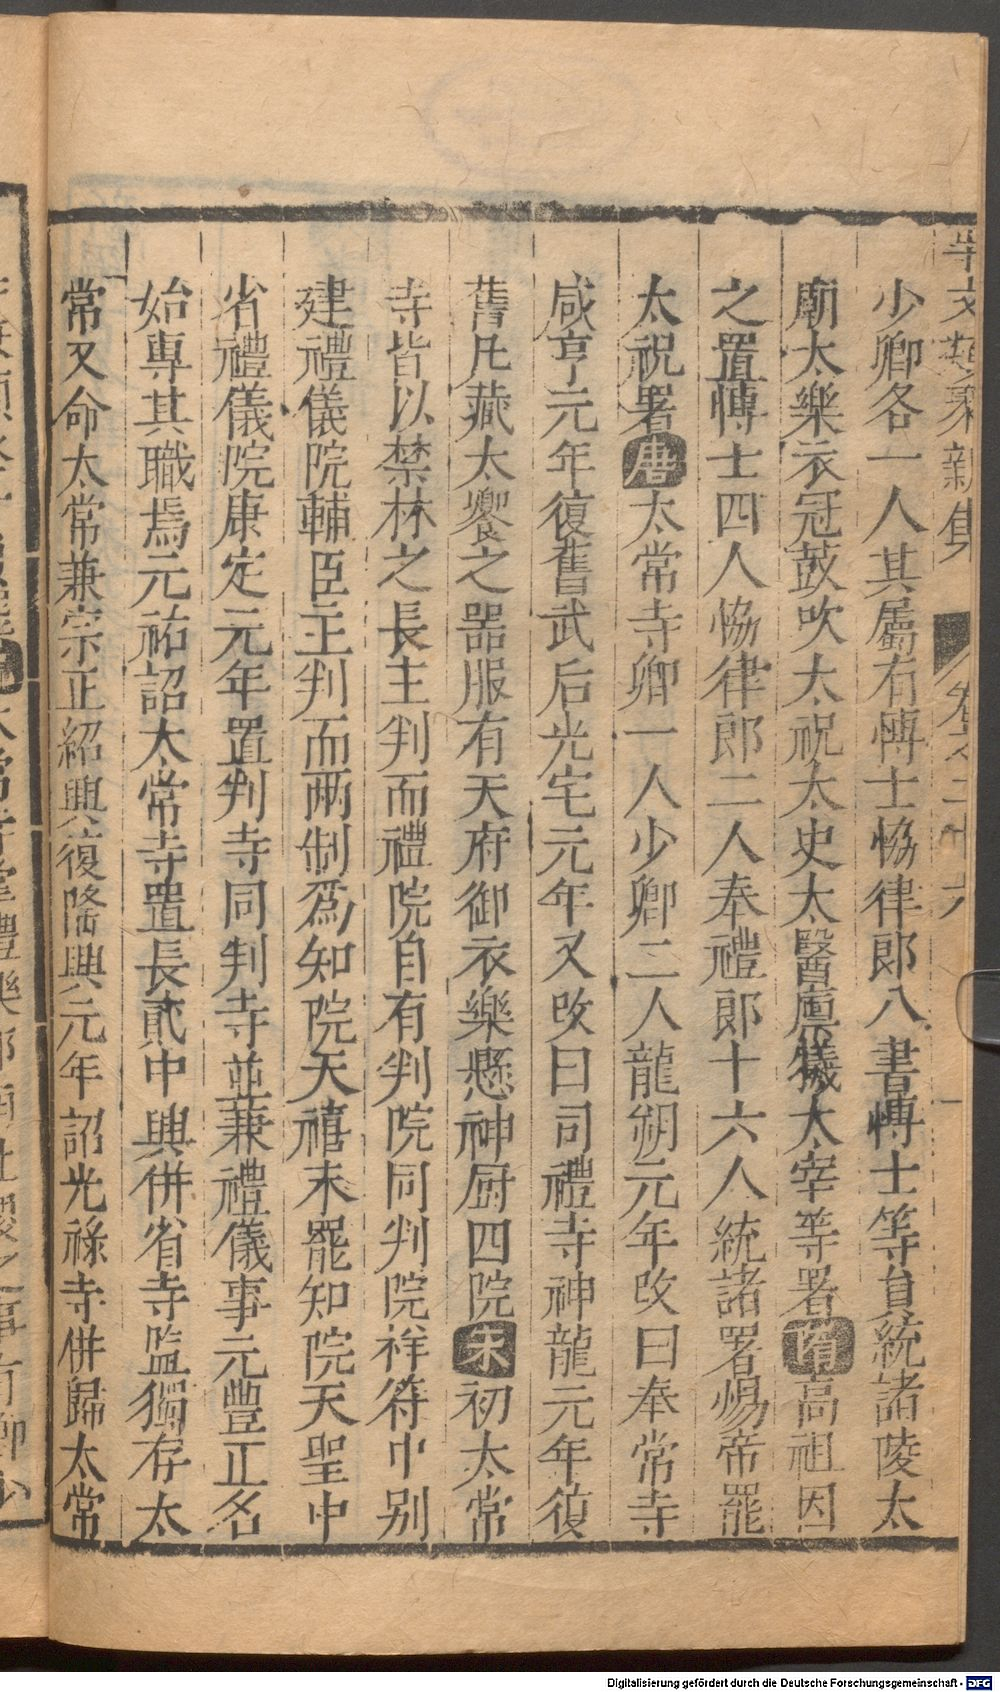 事文類聚新集 卷之二十六
少卿各一人其屬有愽士恊律郎八書愽士等員統諸陵太
廟太樂衣冠鼓吹太祝太史太醫廪犧太宰等署隋高祖因
之置愽士四人恊律郎二人奉禮郎十六人統諸署煬帝罷
太祝署唐太常寺卿一人少卿二人龍朔元年改曰奉常寺
咸亨元年復舊武后光宅元年又改曰司禮寺神龍元年復
舊凡藏太饗之器服有天府御衣樂懸神厨四院宋初太常
寺皆以禁林之長主判而禮院自有判院同判院祥符中别
建禮儀院輔臣主判而两制爲知院天禧末罷知院天聖中
省禮儀院康定元年置判寺同判寺並兼禮儀事元豐正名
始專其職焉元祐詔太常寺置長貳中興併省寺監獨存太
常又命太常兼宗正紹興復隆興元年詔光祿寺併歸太常
Digitalisierung gefördert durch die Deutsche Forschungsgemeinschaft - DFG